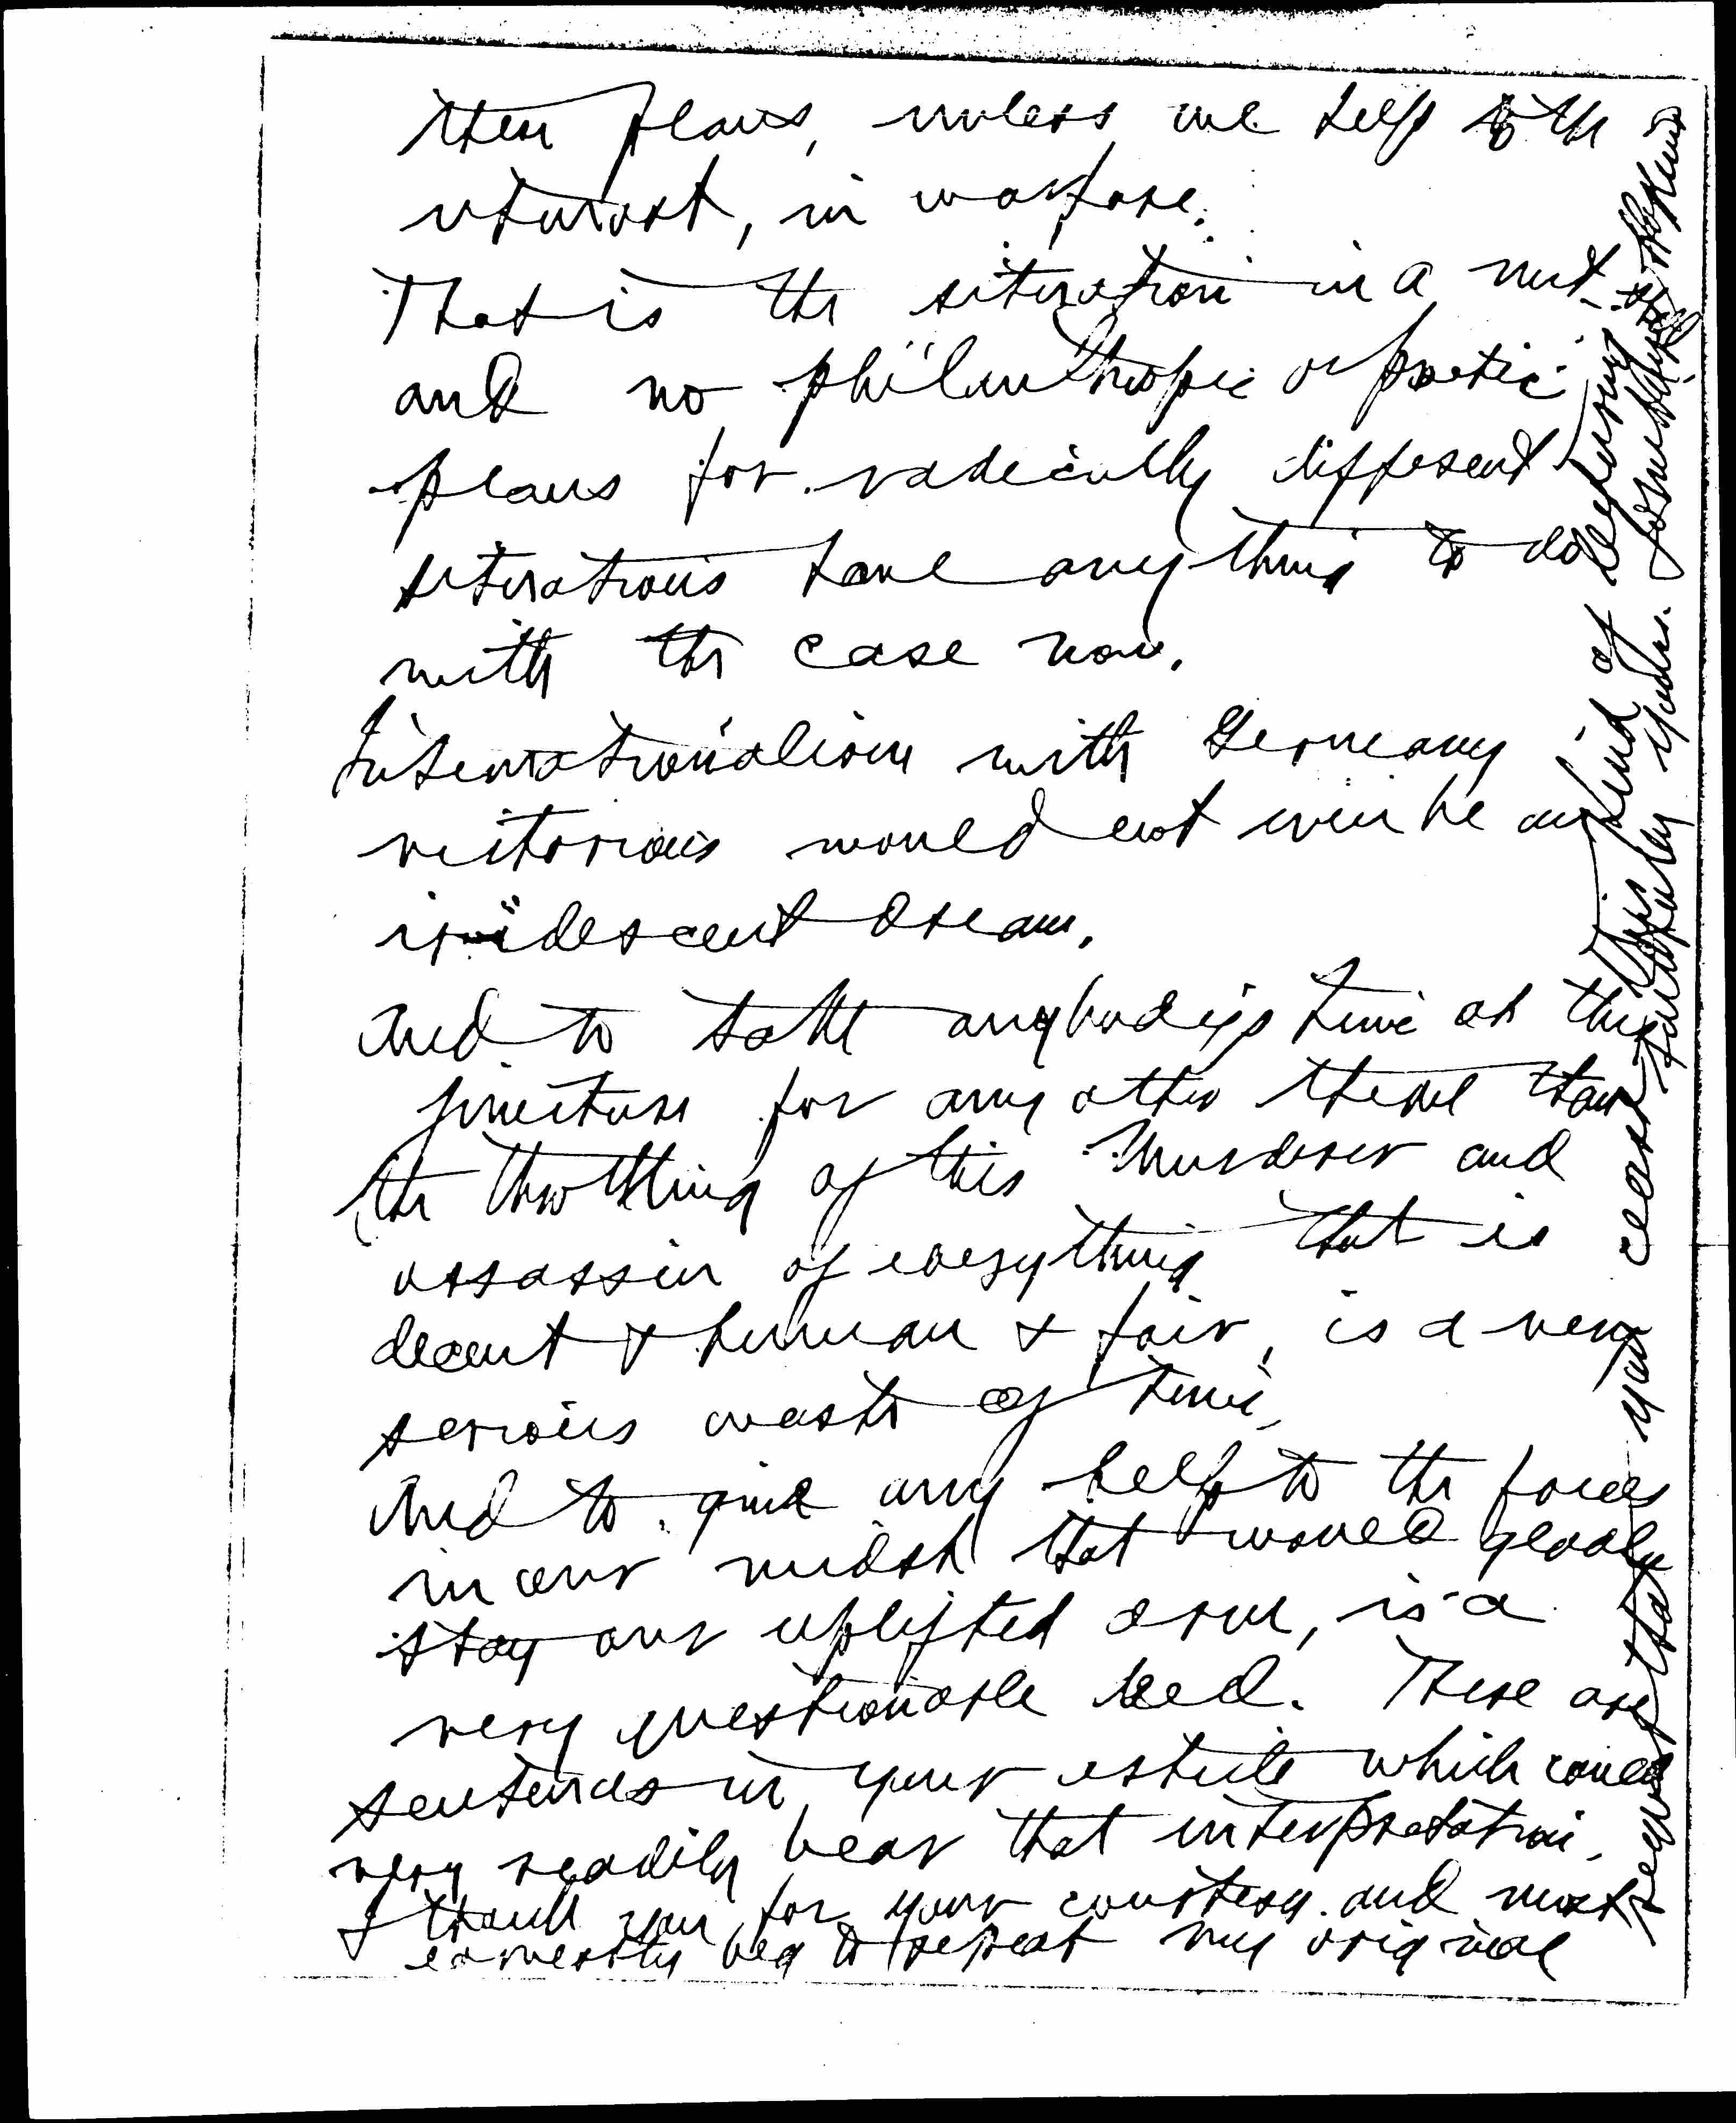 their plans, unless we help to the
utmost, in warfare.
That is the situation in a nut-shell
and no philanthropic or poetic
plans for radically different
situations have anything to do
with the case now.
Internationalism with Germany
victorious would not even be an
iridescent dream.
And to take anybody's time at this
juncture for any other theme than
the throttling of this murderer and
assassin of everything that is
decent & human & fair, is a very
serious waste of time.
And to give any help to the forces
in our midst that would gladly
stay our uplifted arm, is a
very questionable deed. There are
sentences in your article which could
very readily bear that interpretation.
I thank you for your courtesy and most
earnestly beg to repeat my original
request that you cease this kind of
faithfully yours.